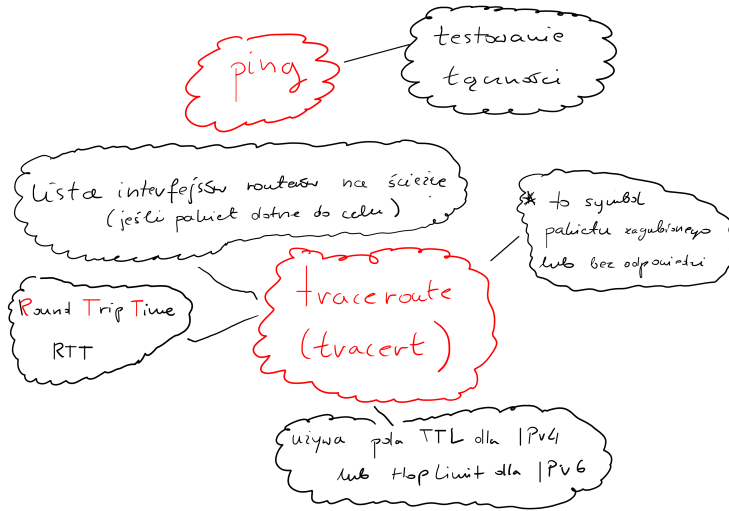 ping
testowanie
łączności
Lista interfejsów routerów na ścieżce
(jeśli pakiet dotrze do celu)
* to symbol
pakietu zagubionego
lub bez odpowiedzi
Round Trip Time
RTT
traceroute
(tracert)
używa pola TTL dla IPv4
lub Hop Limit dla IPv6